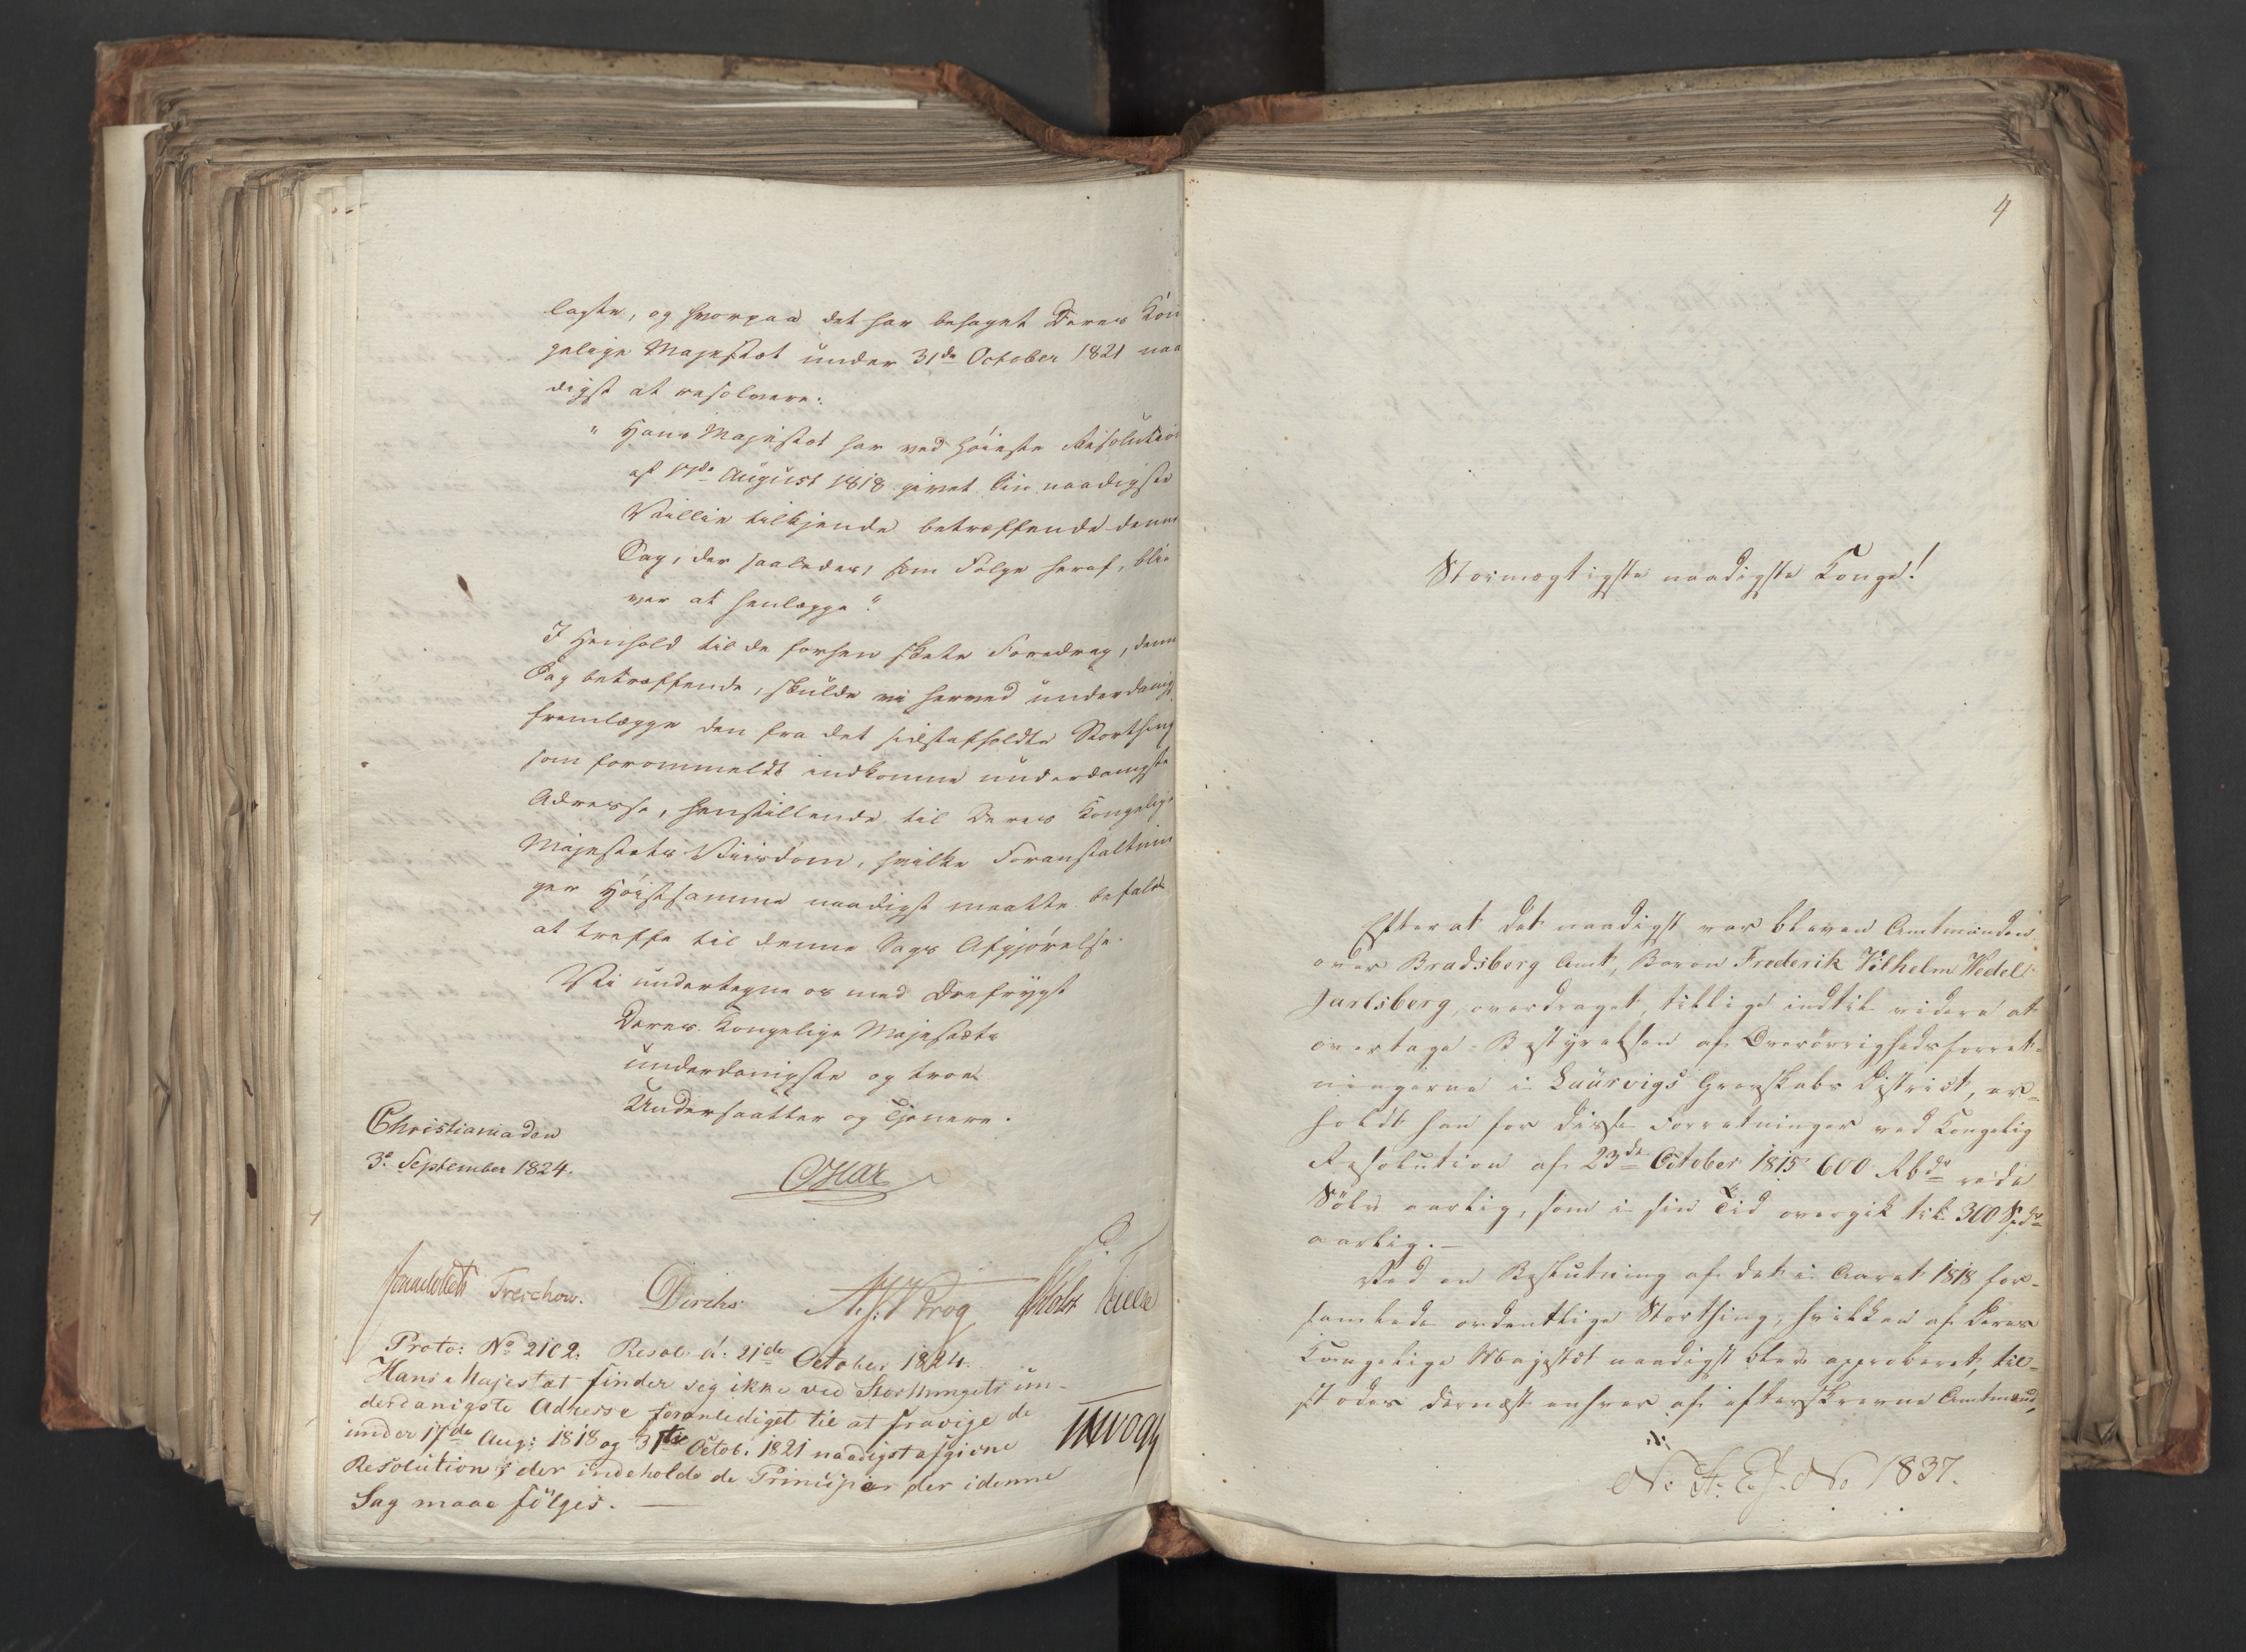 lagte, og hvorpaa det har behaget Deres Kon
gelige Majestæt under 31de October 1821 naa
digst at resolvere:
" Hans Majestæt har ved høieste Resolution
af 17de August 1818 givet Sin naadigste
Villie tilkjende betræffende denne
Sag, der saaledes, som Følge heraf, bli
ver at henlægge".
I Henhold til de forhen skete Foredrag, denne
Sag betræffende, skulde vi herved underdanigst
fremlægge den fra det sidstafholdte Storthing
som forommeldt indkomne underdanigste
Adresse, henstillende til Deres Kongelige
Majestæts Viisdom, hvilke Foranstaltnin
ger Høistsamme naadigst maatte befale
at træffe til denne Sags Afgjørelse.
Vi undertegne os med Ærefrygt
Deres Kongelige Majestæts
underdanigste og troe
Undersaatter og Tjenere.
Christiania den
3d September 1824.
Oscar
Treschow. Diriks Krog
Proto: No 2102. Resol. d: 21de October 1824.
Hans Majestæt finder sig ikke ved Storthingets un-
derdanigste Adresse foranlediget til at fravige de
under 17de Aug: 1818 og 31te Octob. 1821 naadigst afgivne
Resolution, der indeholde de Principier der i denne
Sag maae følges. —
4
Stormægtigste naadigste Konge!
Efterat det naadigst var bleven Amtmanden
over Bradsberg Amt, Baron Frederik Vilhelm Wedel
Jarlsberg, overdraget, tillige indtil videre at
overtage Bestyrelsen af Overøvrighedsforret-
ningerne i Laurvigs Grevskabs District, er-
holdt han for disse Forretninger ved Kongelig
Resolution af 23de October 1815 600 Rbdr rede
Sølv aarlig, som i sin Tid overgik til 300 Spdr
aarlig. —
Ved en Beslutning af det i Aaret 1818 for-
samlede ordentlige Storthing, hvilken af Deres
Kongelige Majestæt naadigst blev approberet, til-
stodes dernæst enhver af efterskrevne Amtmænd,
No 1837.